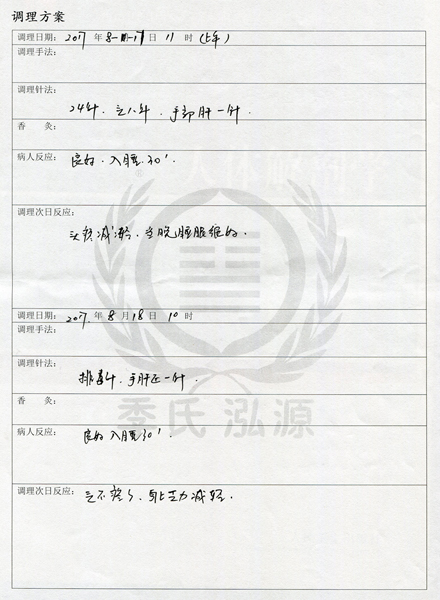 调理方案
调理日期: 2017 年 8 17 日 11 时 (上午)
调理手法:
调理针法:
24针、三八针、手部肝一针.
香 灸:
病人反应: 良好、入睡30'.
调理次日反应:
头疼减轻、当晚睡眠很好.
调理日期: 2017 年 8 月 18 日 10 时
调理手法:
调理针法:
排毒针、手肝区一针.
香 灸:
病人反应: 良好 入睡30'.
调理次日反应: 头不疼了、 减轻.
季氏 泓源